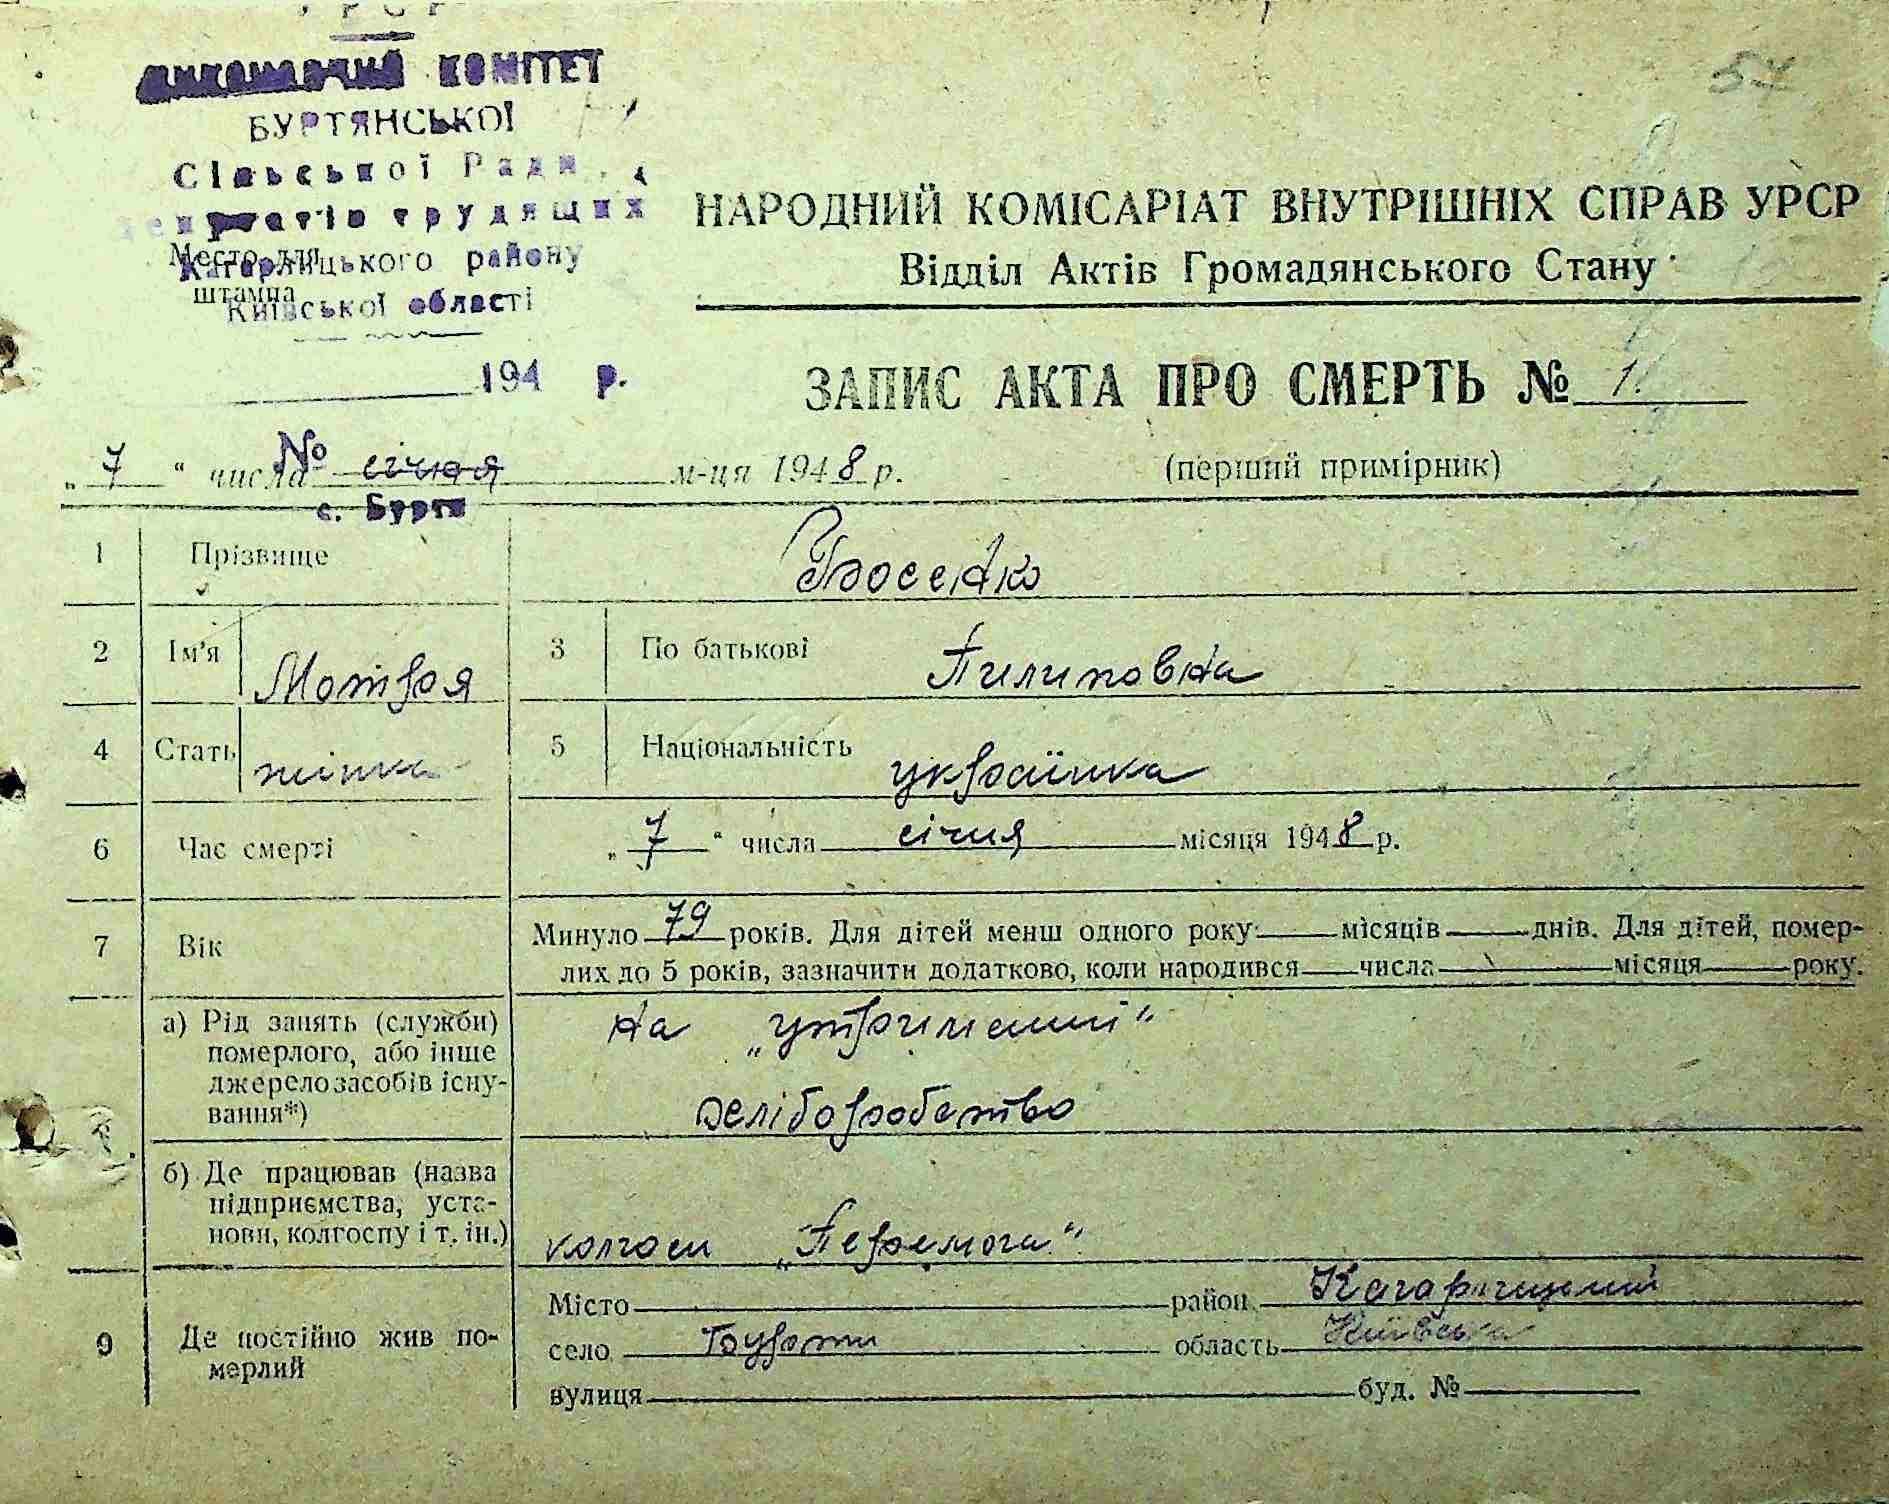 УРСР
ВИКОНАВЧИЙ КОМІТЕТ
БУРТЯНСЬКОЇ
Сільської Ради
депутатів трудящих
Место для
Кагарлицького району
штампа
Київської області
194 р.
№
с. Бурти
57
НАРОДНИЙ КОМІСАРІАТ ВНУТРІШНІХ СПРАВ УРСР
Відділ Актів Громадянського Стану
ЗАПИС АКТА ПРО СМЕРТЬ № 1.
„7“ числа січня м-ця 1948 р. (перший примірник)
1 Прізвище
2 Ім'я Мотря 3 По батькові Пилиповна
4 Стать жінка 5 Національність українка
6 Час смерті „7“ числа січня місяця 1948 р.
7 Вік Минуло 79 років. Для дітей менш одного року місяців днів. Для дітей, помер-
лих до 5 років, зазначити додатково, коли народився числа місяця року.
а) Рід занять (служби) на „утриманні“
померлого, або інше
джерело засобів існу-
вання*) хліборобство
б) Де працював (назва
підприємства, уста-
нови, колгоспу і т. ін.) колгосп „Перемога“
Місто район Кагарлицький
9 Де постійно жив по- село Бурти область Київська
мерлий
вулиця буд. №